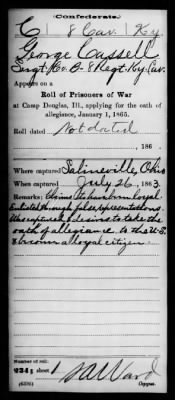 Confederate.
C 8 Cav. Ky.
George Cassell
Sergt, Co. B- 8 Regt. Ky. Cav.
Appears on a
Roll of Prisoners of War
at Camp Douglas, Ill., applying for the oath of
allegiance, January 1, 1865.
Roll dated
Not dated
, 186 .
Where captured Salineville, Ohio
When captured July 26, 1863.
Remarks: Claims to have been loyal
Enlisted through false representations.
Was captured & desires to take the
oath of allegiance to the U.S.
& become a loyal citizen.
Number of roll:
234; sheet 1
(639b)
Ward
Copyist.